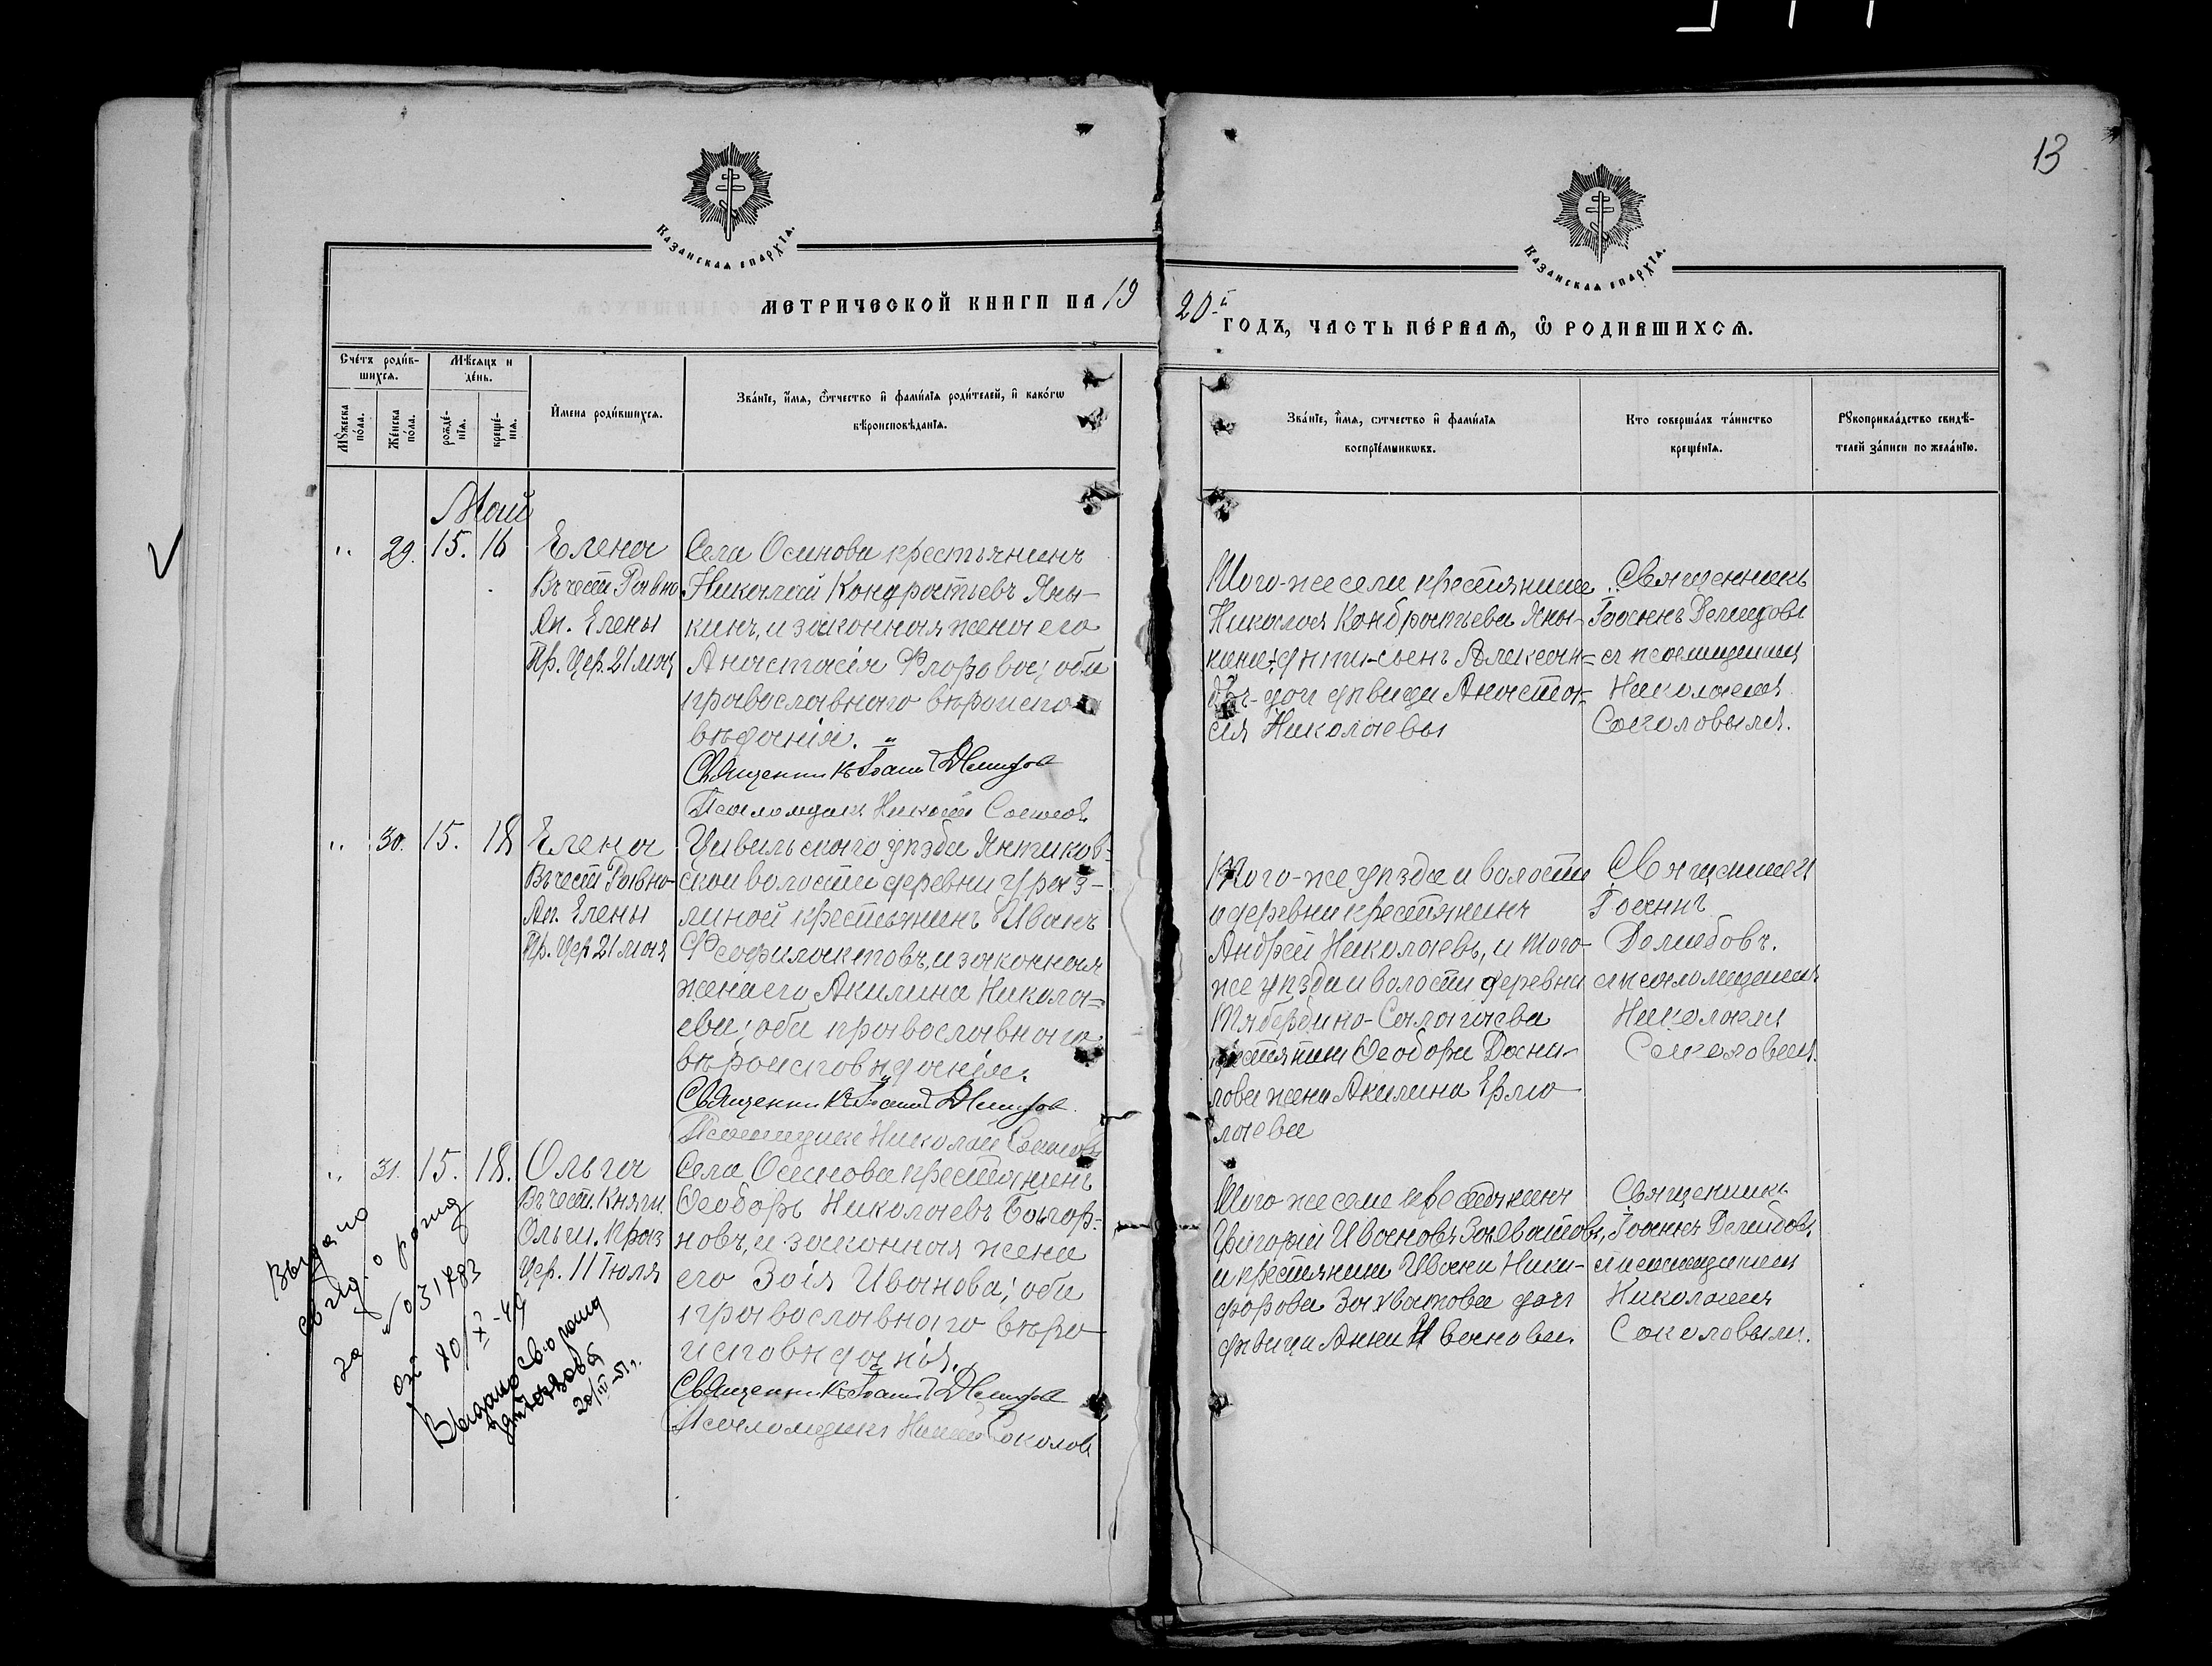 13
Казанская епархїа.
Казанская епархїа.
МЕТРИЧЕСКОЙ КНИГИ НА 19
20й ГОДЪ, ЧАСТЬ ПЕ́РВАЯ, Ѿ РОДИВШИХСЯ.
Сче́тъ роди́в-
шихся.
Мѣ́сяцъ и
де́нь.
Мꙋ́жеска
по́ла.
Же́нска
по́ла.
рожде́-
нїя.
креще́-
нїя.
И́мена роди́вшихся.
Зва́нїе, и́мя, ѻ́тчество и҆ фами́лїя роди́телей, и҆ како́гѡ
вѣроисповѣ́данїя.
Зва́нїе, и́мя, ѻ́тчество и҆ фами́лїя
воспрїе́мникѡвъ.
Кто соверша́лъ та́инство
креще́нїя.
Рꙋкоприкла́дство свидѣ́-
телей за́писи по жела́нїю.
Май
" 29. 15. 16 Елена
Въ честь Равно
Ап. Елены
Пр. Цер. 21 мая
Села Осинова крестьянинъ
Николай Кондратьевъ Яны-
кинъ, и законная жена его
Анастасія Флорова; оба
православнаго вѣроиспо-
вѣданія.
Священникъ Іоаннъ Демидов
Псаломщикъ Николай Соколовъ
Того-же села крестьянина
Николая Кондратьева Яны-
кина: дѣти-сынъ Алексан-
дръ-доч дѣвица Анаста-
сія Николаевы
Священникъ
Іоаннъ Демидовъ
съ псаломщикомъ
Николаемъ
Соколовымъ.
" 30. 15. 18 Елена
Въ честь Равно-
Ап. Елены
Пр. Цер 21 мая
Цивильскаго уѣзда Янтиков-
ской волости деревни Ураз-
линой крестьянинъ Иванъ
Феофилактовъ, и законная
жена его Акилина Никола-
ева; оба православнаго
вѣроисповѣданія.
Священникъ Іоаннъ Демидов
Псаломщикъ Николай Соколовъ
Того-же уѣзда и волости
и деревни крестьянинъ
Андрей Николаевъ, и того-
же уѣзда и волости деревни
Тябердино-Салагаева
крестьянина Ѳеодора Дани-
лова жена Акилина Ермо
лаева
Священникъ
Іоаннъ
Демидовъ.
съ псаломщикомъ
Николаемъ
Соколовымъ.
" 31. 15. 18. Ольга
Въ честь Княги.
Ольги. Праз
Цер. 11 Іюля
Села Осинова крестьянинъ
Ѳеодоръ Николаевъ
новъ, и законная жена
его Зоія Иванова; оба
православнаго вѣро
исповѣданія.
Священникъ Іоаннъ Демидов
Псаломщикъ Николай Соколовъ
Того же села крестьянинъ
Григорій Ивановъ Захватовъ,
и крестьянина Ивана Ники-
форова Захватова доч
дѣвица Анна Иванова.
Священникъ
Іоаннъ Демидовъ,
съ псаломщикомъ
Николаемъ
Соколовымъ.
Выдано
свид. о рожд
за № 031783
от 10/X-49
Выдано св. о рожд
20/IV-51 г.